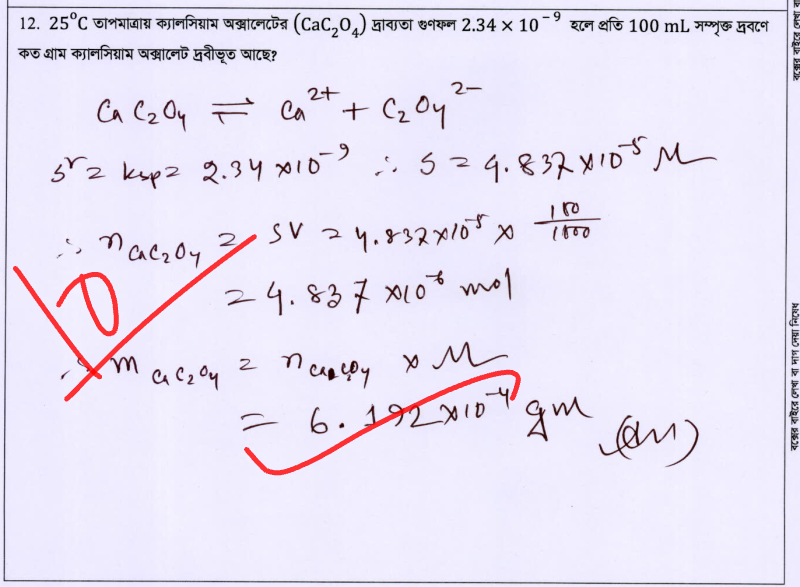 12. 25°C তাপমাত্রায় ক্যালসিয়াম অক্সালেটের (CaC₂O₄) দ্রাব্যতা গুণফল 2.34 × 10⁻⁹ হলে প্রতি 100 mL সম্পৃক্ত দ্রবণে
কত গ্রাম ক্যালসিয়াম অক্সালেট দ্রবীভূত আছে?
CaC₂O₄ ⇌ Ca²⁺ + C₂O₄²⁻
S² = ksp = 2.34 × 10⁻⁹ ∴ S = 4.837 × 10⁻⁵ M
∴ n CaC₂O₄ = SV = 4.837 × 10⁻⁵ × 100/1000
= 4.837 × 10⁻⁶ mol
10
∴ m CaC₂O₄ = n CaC₂O₄ × M
= 6.192 × 10⁻⁴ gm (Ans)
বক্সের বাইরে লেখা বা দাগ দেয়া নিষেধ
বক্সের বাইরে লেখা বা